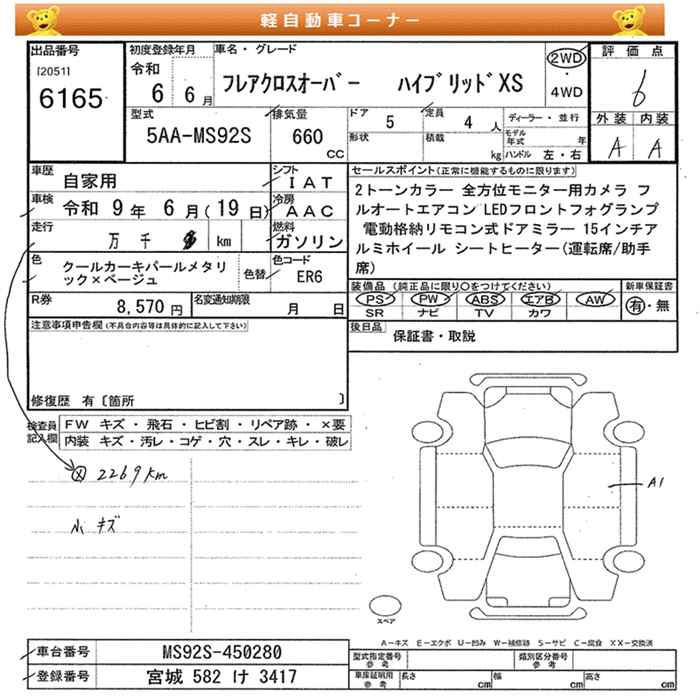 軽自動車コーナー
出品番号
[2051]
6165
初度登録年月
令和
6 6月
車名・グレード
フレアクロスオーバー ハイブリッドXS
2WD
・
4WD
評価点
6
外装 内装
A A
型式
5AA-MS92S
排気量
660
CC
ドア
5
定員
4 人
形状
積載
kg
ディーラー・並行
モデル年式 年
ハンドル 左・右
車歴
自家用
シフト
IAT
車検
令和 9年 6月(19日)
冷房
AAC
走行
万 千 km
燃料
ガソリン
色
クールカーキパールメタリ
ック×ベージュ
色替
色コード
ER6
R券
8,570円
名変通知期限
月 日
セールスポイント(正常に機能するものに限ります)
2トーンカラー 全方位モニター用カメラ フ
ルオートエアコン LEDフロントフォグランプ
電動格納リモコン式ドアミラー 15インチア
ルミホイール シートヒーター(運転席/助手
席)
装備品(純正品に限り○をつけてください)
PS PW ABS エアB AW
SR ナビ TV カワ
新車保証書
有・無
後日品
保証書・取説
注意事項申告欄(不具合内容等は具体的に記入して下さい)
修復歴 有〔箇所 〕
検査員
記入欄
FW キズ・飛石・ヒビ割・リペア跡・×要
内装 キズ・汚レ・コゲ・穴・スレ・キレ・破レ
2269km
小キズ
A1
スペア
A－キズ E－エクボ U－凹み W－補修跡 S－サビ C－腐食 XX－交換済
車台番号
MS92S-450280
登録番号
宮城 582 け 3417
型式指定番号
参考
類別区分番号
参考
車庫証明用
参考
長さ cm
幅 cm
高さ cm